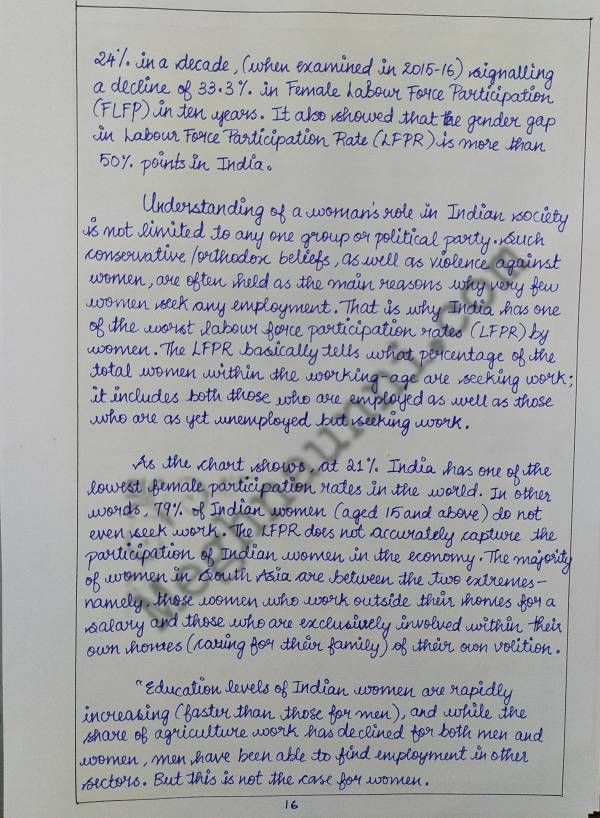 24% in a decade, (when examined in 2015-16) signalling
a decline of 33.3% in Female Labour Force Participation
(FLFP) in ten years. It also showed that the gender gap
in Labour Force Participation Rate (LFPR) is more than
50% points in India.
Understanding of a woman's role in Indian society
is not limited to any one group or political party. Such
conservative/orthodox beliefs, as well as violence against
women, are often held as the main reasons why very few
women seek any employment. That is why India has one
of the worst labour force participation rates (LFPR) by
women. The LFPR basically tells what percentage of the
total women within the working-age are seeking work;
it includes both those who are employed as well as those
who are as yet unemployed but seeking work.
As the chart shows, at 21% India has one of the
lowest female participation rates in the world. In other
words, 79% of Indian women (aged 15 and above) do not
even seek work. The LFPR does not accurately capture the
participation of Indian women in the economy. The majority
of women in South Asia are between the two extremes-
namely, those women who work outside their homes for a
salary and those who are exclusively involved within their
own homes (caring for their family) of their own volition.
"Education levels of Indian women are rapidly
increasing (faster than those for men), and while the
share of agriculture work has declined for both men and
women, men have been able to find employment in other
sectors. But this is not the case for women.
16